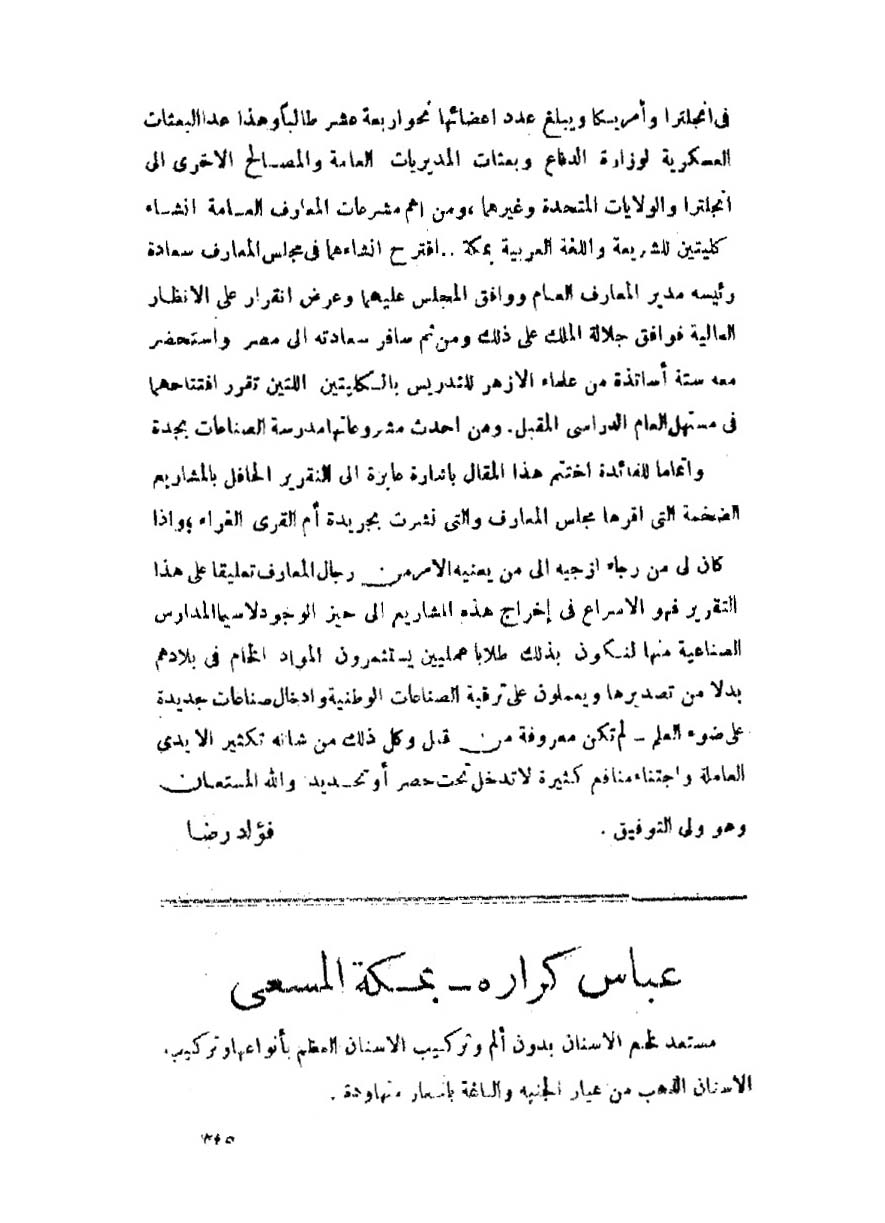 فى انجلترا وأمريكا ويبلغ عدد اعضائها نحو اربعة عشر طالباً وهذا عدا البعثات
العسكرية لوزارة الدفاع وبعثات المديريات العامة والمصالح الاخرى الى
انجلترا والولايات المتحدة وغيرها ،ومن اهم مشرعات المعارف العامة انشاء
كليتين للشريعة واللغة العربية بمكة .. اقترح انشاءهما فى مجلس المعارف سعادة
رئيسه مدير المعارف العام ووافق المجلس عليهما وعرض القرار على الانظار
العالية فوافق جلالة الملك على ذلك ومن ثم سافر سعادته الى مصر واستحضر
معه ستة أساتذة من علماء الازهر للتدريس بالكليتين اللتين تقرر افتتاحهما
فى مستهل العام الدراسى المقبل . ومن احدث مشروعاتها مدرسة الصناعات بجدة
واتماما للفائدة اختتم هذا المقال باشارة عابرة الى التقرير الحافل بالمشاريع
الضخمة التى اقرها مجلس المعارف والتى نشرت بجريدة أم القرى الغراء ، واذا
كان لى من رجاء ازجيه الى من يعنيه الامر من رجال المعارف تعليقا على هذا
التقرير فهو الاسراع فى إخراج هذه المشاريع الى حيز الوجود لاسيما المدارس
الصناعية منها لنكون بذلك طلابا عمليين يستثمرون المواد الخام فى بلادهم
بدلا من تصديرها ويعملون على ترقية الصناعات الوطنية وادخال صناعات جديدة
على ضوء العلم - لم تكن معروفة من قبل وكل ذلك من شانه تكثير الايدي
العاملة واجتناء منافع كثيرة لا تدخل تحت حصر أو تحديد والله المستعان
وهو ولى التوفيق . فؤاد رضا
عباس كراره - بمكة المسعى
مستعد لخلع الاسنان بدون ألم وتركيب الاسنان العظم بأنواعها وتركيب
الاسنان الذهب من عيار الجنيه والباغة باسعار متهاودة .